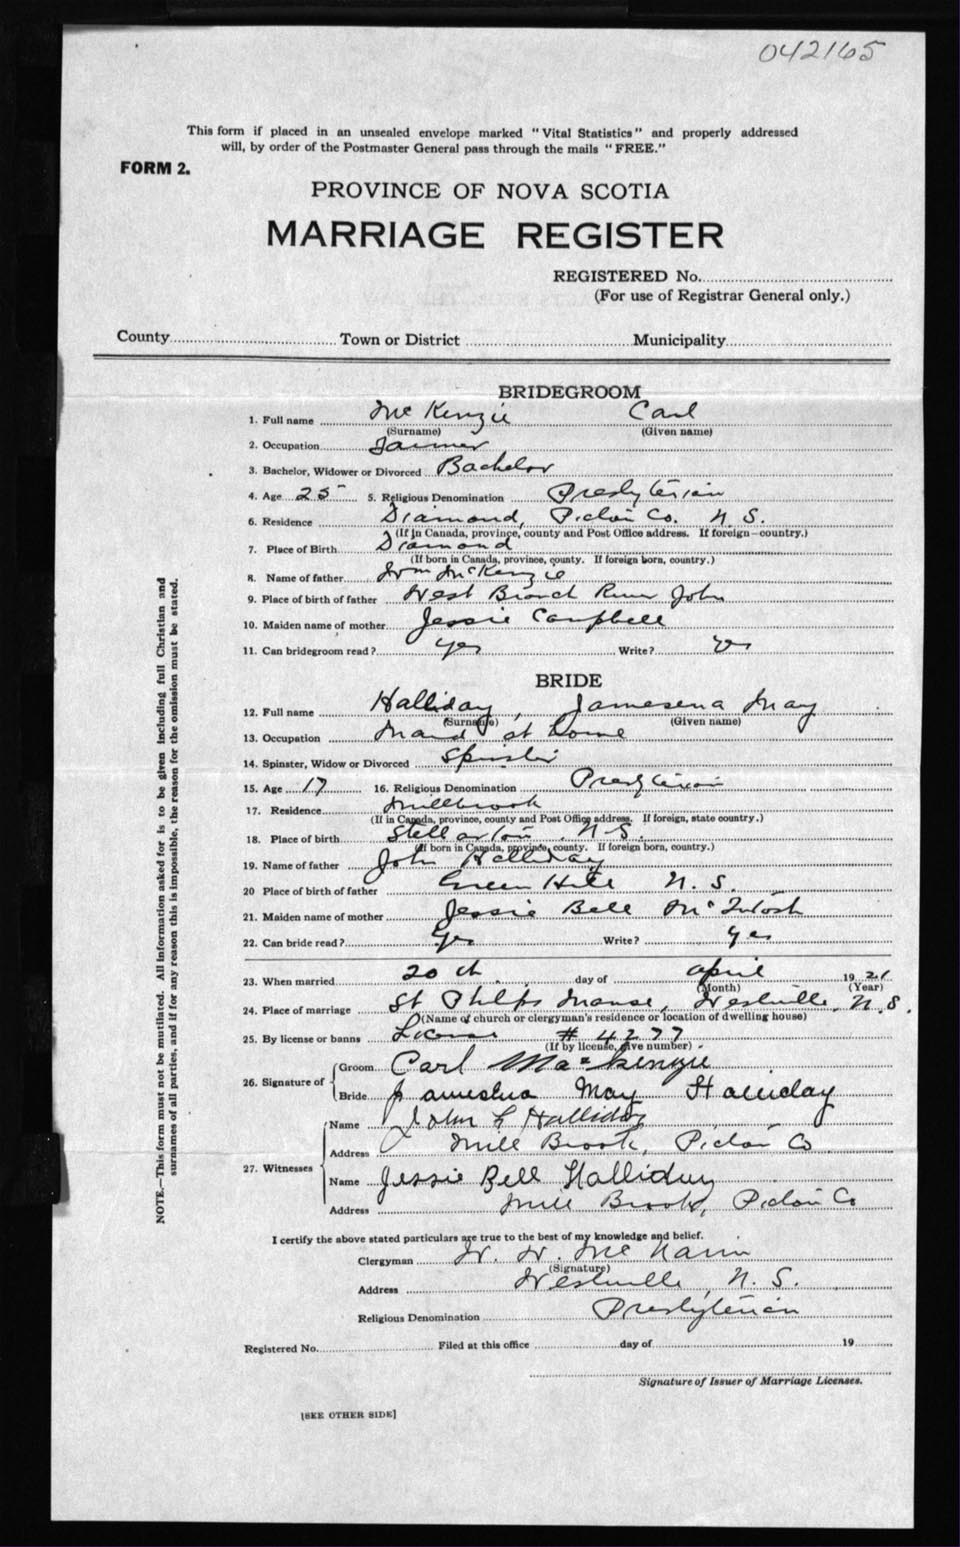 042165
This form if placed in an unsealed envelope marked "Vital Statistics" and properly addressed
will, by order of the Postmaster General pass through the mails "FREE."
FORM 2.
PROVINCE OF NOVA SCOTIA
MARRIAGE REGISTER
REGISTERED No.
(For use of Registrar General only.)
County Town or District Municipality
BRIDEGROOM
1. Full name McKenzie Carl
(Surname) (Given name)
2. Occupation Farmer
3. Bachelor, Widower or Divorced Bachelor
4. Age 25 5. Religious Denomination Presbyterian
6. Residence Diamond, Pictou Co. N. S.
(If in Canada, province, county and Post Office address. If foreign—country.)
7. Place of Birth Diamond
(If born in Canada, province, county. If foreign born, country.)
8. Name of father Wm McKenzie
9. Place of birth of father West Branch River John
10. Maiden name of mother Jessie Campbell
11. Can bridegroom read? Yes Write? Yes
BRIDE
12. Full name Halliday, Jamesena May
(Surname) (Given name)
13. Occupation Maid at Home
14. Spinster, Widow or Divorced Spinster
15. Age 17 16. Religious Denomination Presbyterian
17. Residence Millbrook
(If in Canada, province, county and Post Office address. If foreign, state country.)
18. Place of birth Stellarton N. S.
(If born in Canada, province, county. If foreign born, country.)
19. Name of father John Halliday
20 Place of birth of father Green Hill N. S.
21. Maiden name of mother Jessie Bell McIntosh
22. Can bride read? Yes Write? Yes
23. When married 20th day of April 1921
(Month) (Year)
24. Place of marriage St Manse, Westville, N. S.
(Name of church or clergyman's residence or location of dwelling house)
25. By license or banns License # 4277
(If by license, give number)
26. Signature of
Groom Carl MacKenzie
Bride Jamesena May Halliday
27. Witnesses
Name John Halliday
Address Mill Brook, Pictou Co
Name Jessie Bell Halliday
Address Mill Brook, Pictou Co
I certify the above stated particulars are true to the best of my knowledge and belief.
Clergyman W. W. McNairn
(Signature)
Address Westville, N. S.
Religious Denomination Presbyterian
Registered No. Filed at this office day of 19
Signature of Issuer of Marriage Licenses.
[SEE OTHER SIDE]
NOTE.—This form must not be mutilated. All information asked for is to be given including full Christian and
surnames of all parties, and if for any reason this is impossible, the reason for the omission must be stated.